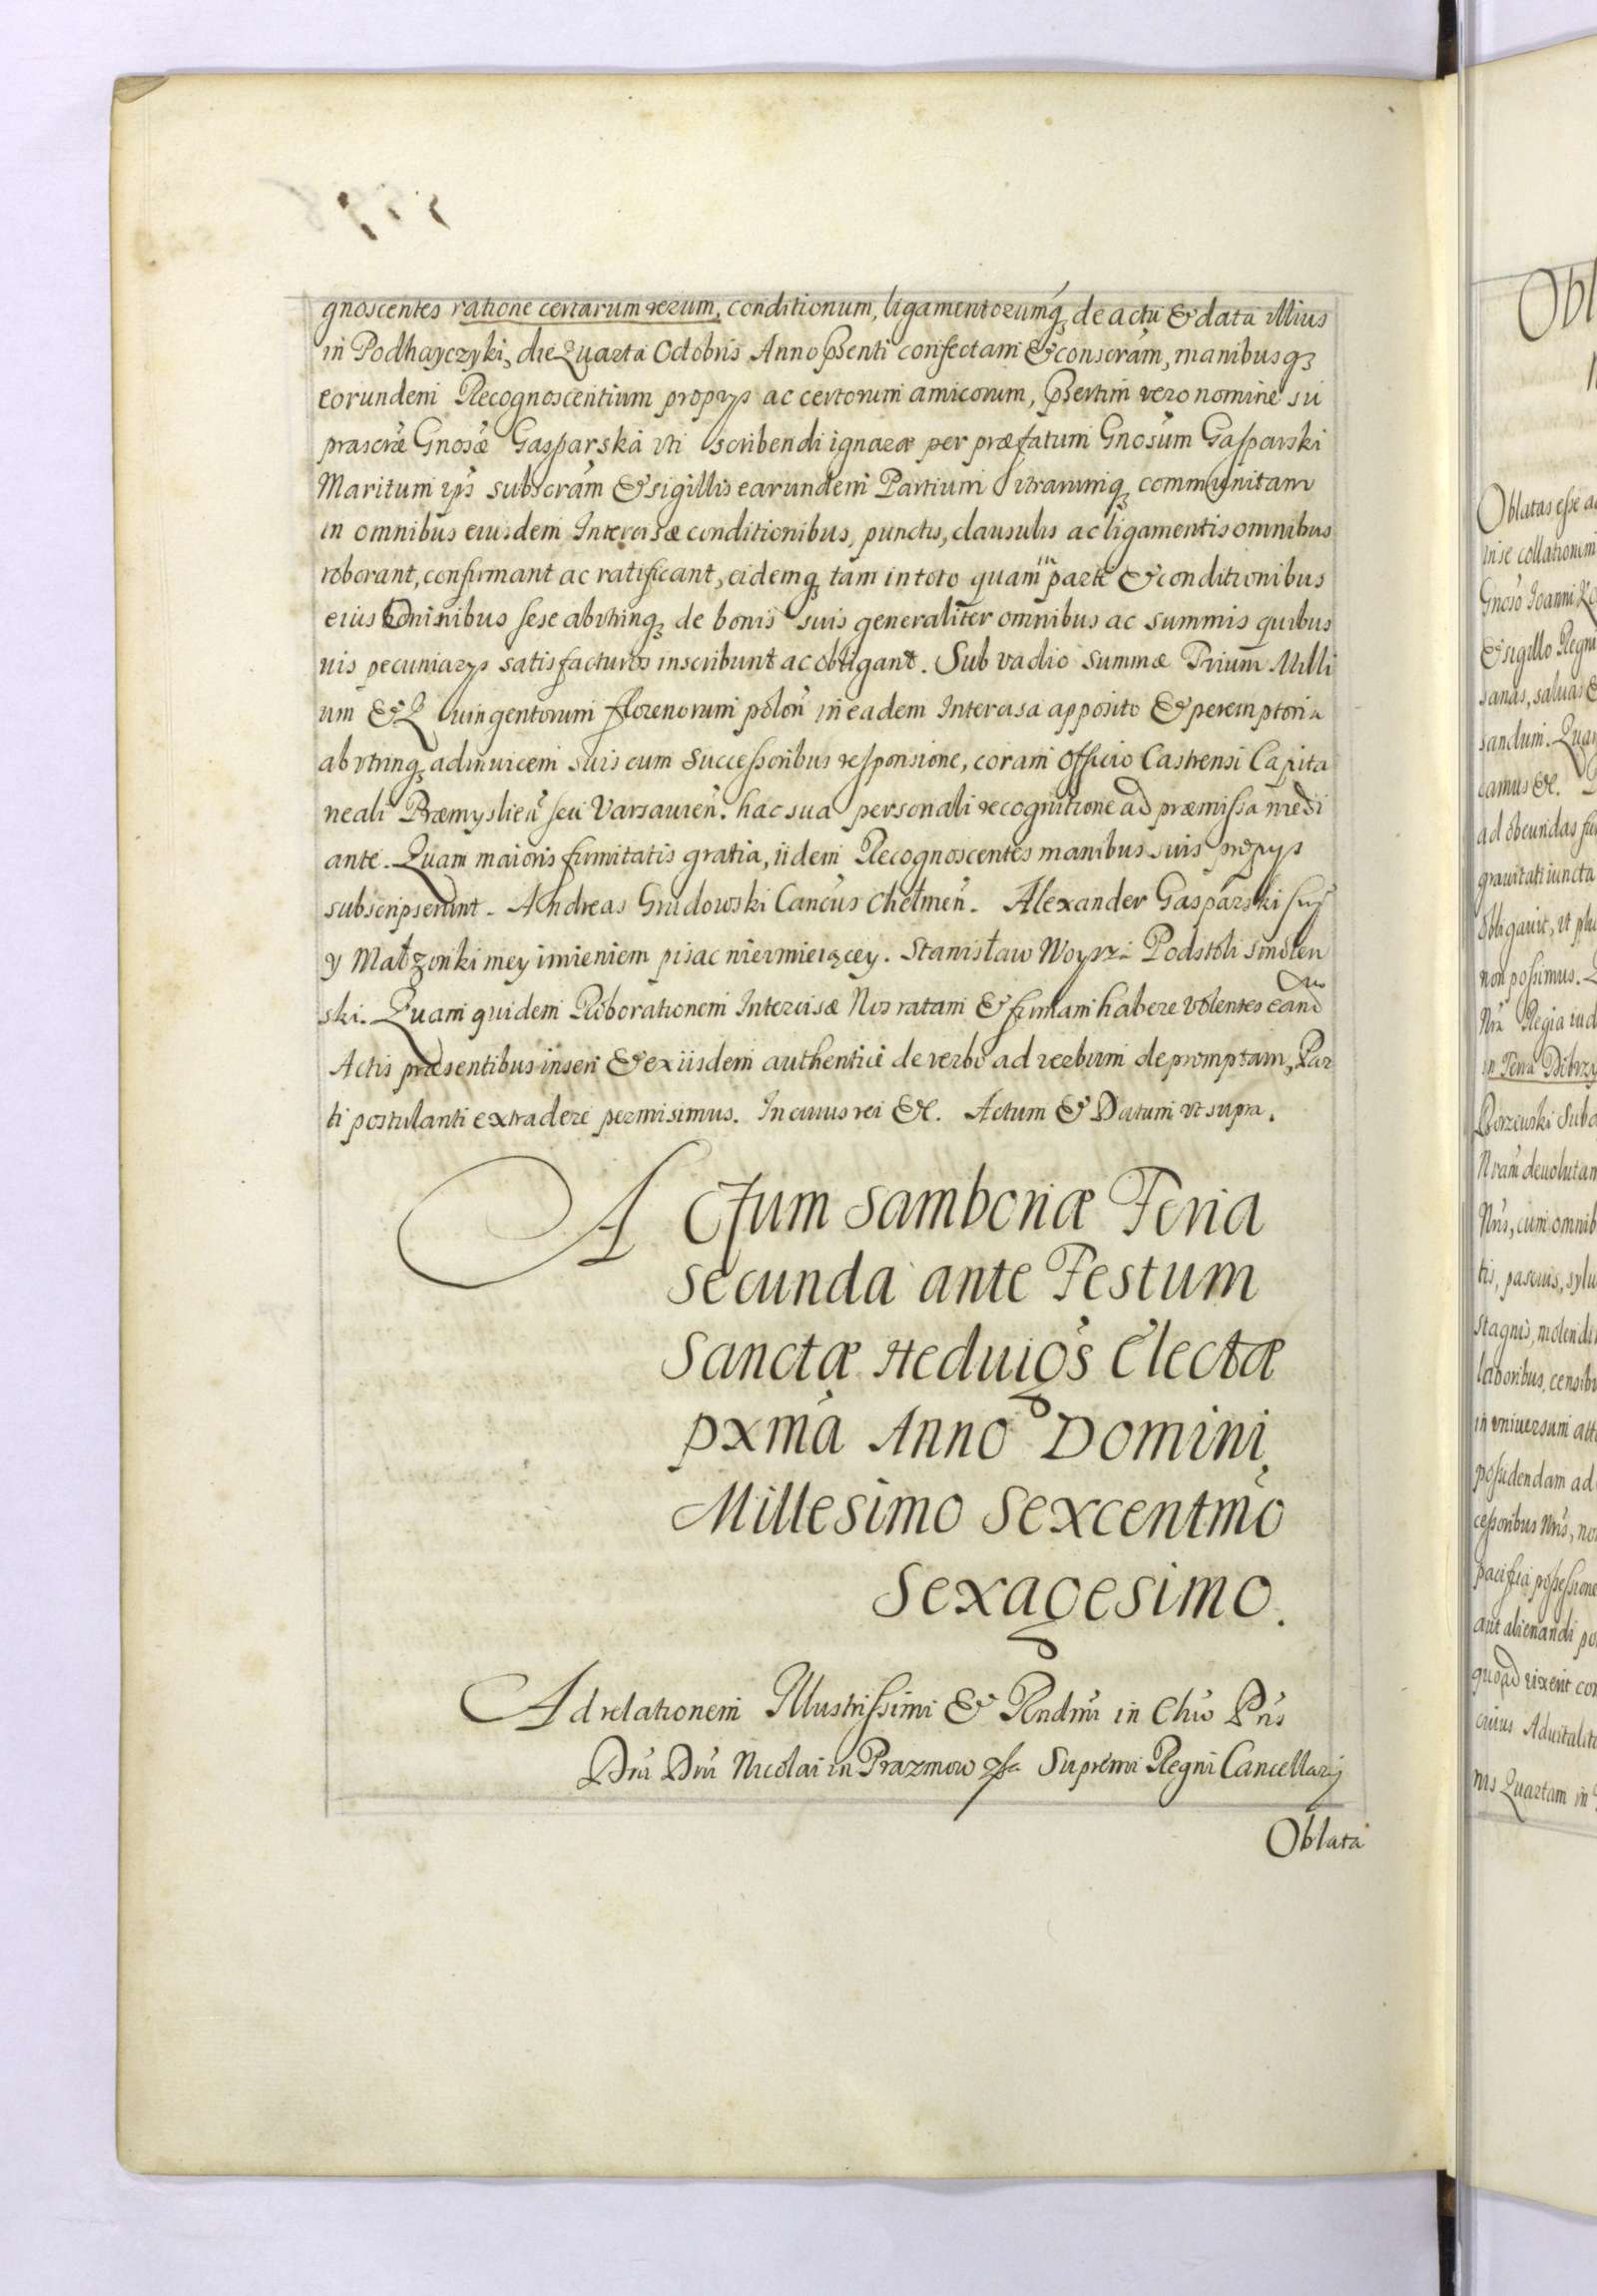 gnoscentes ratione certarum rerum, conditionum, ligamentorumq, de actu & data illius
in Podhayczyki, die Quarta Octobris Anno pñsenti confectam & conscrām, manibusq
eorundem Recognoscentium proprys ac certorum amicorum, pñsertim vero nomine su
prascræ Gnosæ Gasparska vti scribendi ignaræ per præfatum Gnosum Gasparski
Maritum ips subscrām & sigillis earundem Partium vtrarumq communitam
in omnibus eiusdem Intercisæ conditionibus, punctis, clausulis ac ligamentis omnibus
roborant, confirmant ac ratificant, eidemq tam in toto quam in parte & conditionibus
eius omnibus sese abvtrinq de bonis suis generaliter omnibus ac summis quibus
uis pecuniarys satisfacturos inscribunt ac obligant. Sub vadio summæ Trium Milli
um & Quingentorum florenorum polon in eadem Intercisa apposito & peremptoria
abvtrinq adinuicem suis cum successoribus responsione, coram Officio Castrensi Capita
neali Præmyslien seu Varsauien. hac sua personali recognitione ad præmissa medi
ante. Quam maioris firmitatis gratia, iidem Recognoscentes manibus suis proprys
subscripserunt. Andreas Grudowski Cancus Chełmen. Alexander Gasparski suą
y Małzonki mey imieniem pisac nieumieiącey. Stanisław Woyna Podstoli smolen
ski. Quam quidem Roborationem Intercisæ Nos ratam & firmam habere volentes eand
Actis præsentibus inseri & ex iisdem authentice de verbo ad verbum depromptam, Par
ti postulanti extradere permisimus. In cuius rei &c. Actum & Datum vt supra.
Actum Samboriæ Feria
secunda ante Festum
Sanctæ Heduigs Electæ
pxma Anno Domini
Millesimo Sexcentmo
Sexagesimo.
Ad relationem Illustrissimi & Rndmi in Chro Pris
Dni Dni Nicolai in Prazmow Supremi Regni Cancellarij
Oblata
Obl
Oblatas esse ac
in se collationem
Gnoso Ioanni
& sigillo Regni
sanas, saluas &
sandum. Quar
camus &c.
ad obeundas fu
grauitati iuncta
obligauit, vt plu
non possimus.
Nra Regia iud
in Terra Dobrzy
Borzewski Suba
Nram deuolutam
Nris, cum omnib
tis, pascuis, sylu
stagnis, molendi
laboribus, censibu
in vniuersum att
possidendam ad
cessoribus Nris, no
pacifica possessione
aut alienandi po
quoad vixerit con
cuius Aduitalita
nis Quartam in